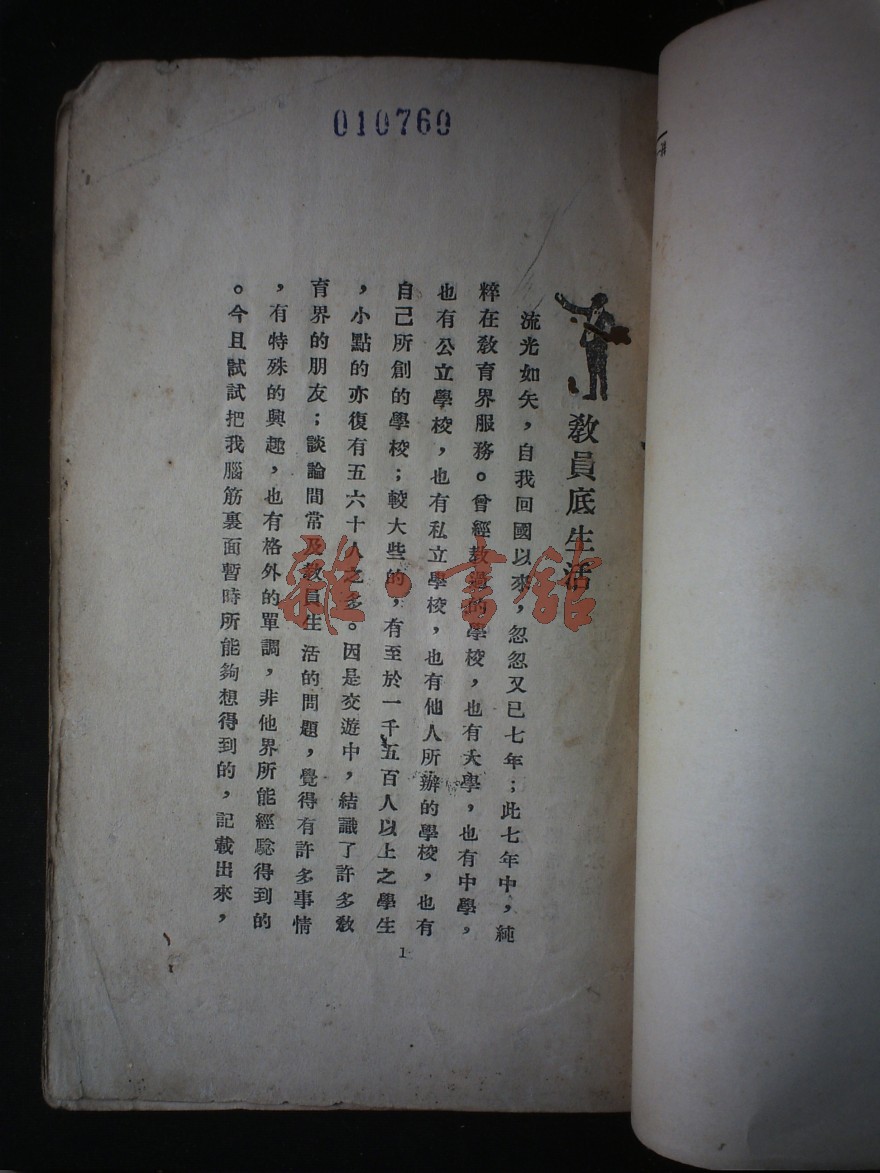 010760
教員底生活
流光如矢，自我回國以來，忽忽又已七年；此七年中，純
粹在教育界服務。曾經教過的學校，也有大學，也有中學，
也有公立學校，也有私立學校，也有他人所辦的學校，也有
自己所創的學校；較大些的，有至於一千五百人以上之學生
，小點的亦復有五六十人之多。因是交遊中，結識了許多教
育界的朋友；談論間常及教員生活的問題，覺得有許多事情
，有特殊的興趣，也有格外的單調，非他界所能經驗得到的
。今且試試把我腦筋裏面暫時所能夠想得到的，記載出來，
1
雜·書館